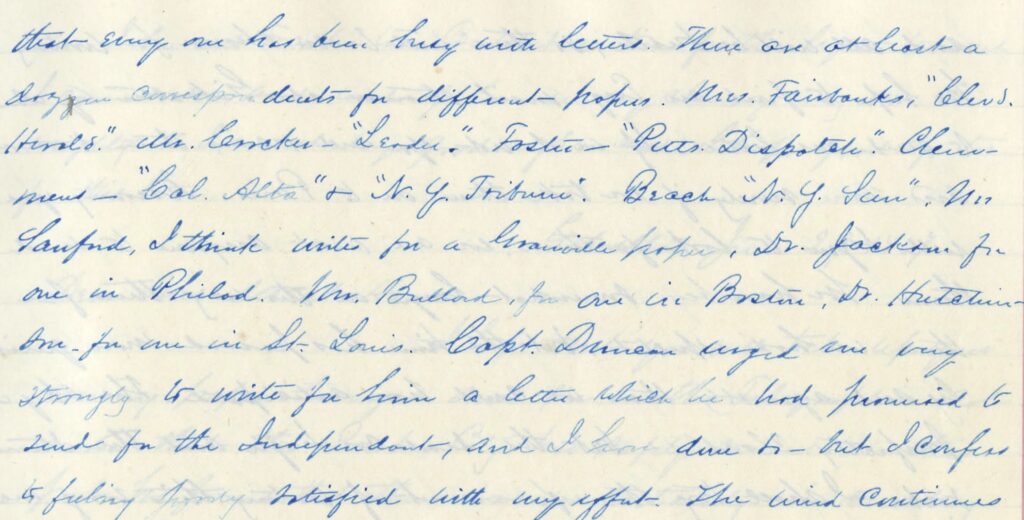 that every one has been busy with letters. There are at least a
dozen correspondents for different papers. Mrs. Fairbanks, "Clevd.
Herald." Mr. Crocker - "Leader." Foster - "Pitts. Dispatch". Clem-
mens - "Cal. Alta" & "N. Y. Tribune". Beach "N. Y. Sun". Mr
Sanford, I think writes for a Granville paper, Dr. Jackson for
one in Philad. Mr. Bullard, for one in Boston, Dr. Hutchin-
son - for one in St. Louis. Capt. Duncan urged me very
strongly to write for him a letter which he had promised to
send for the Independent, and I have done so - but I confess
to feeling poorly satisfied with my effort. The wind continues